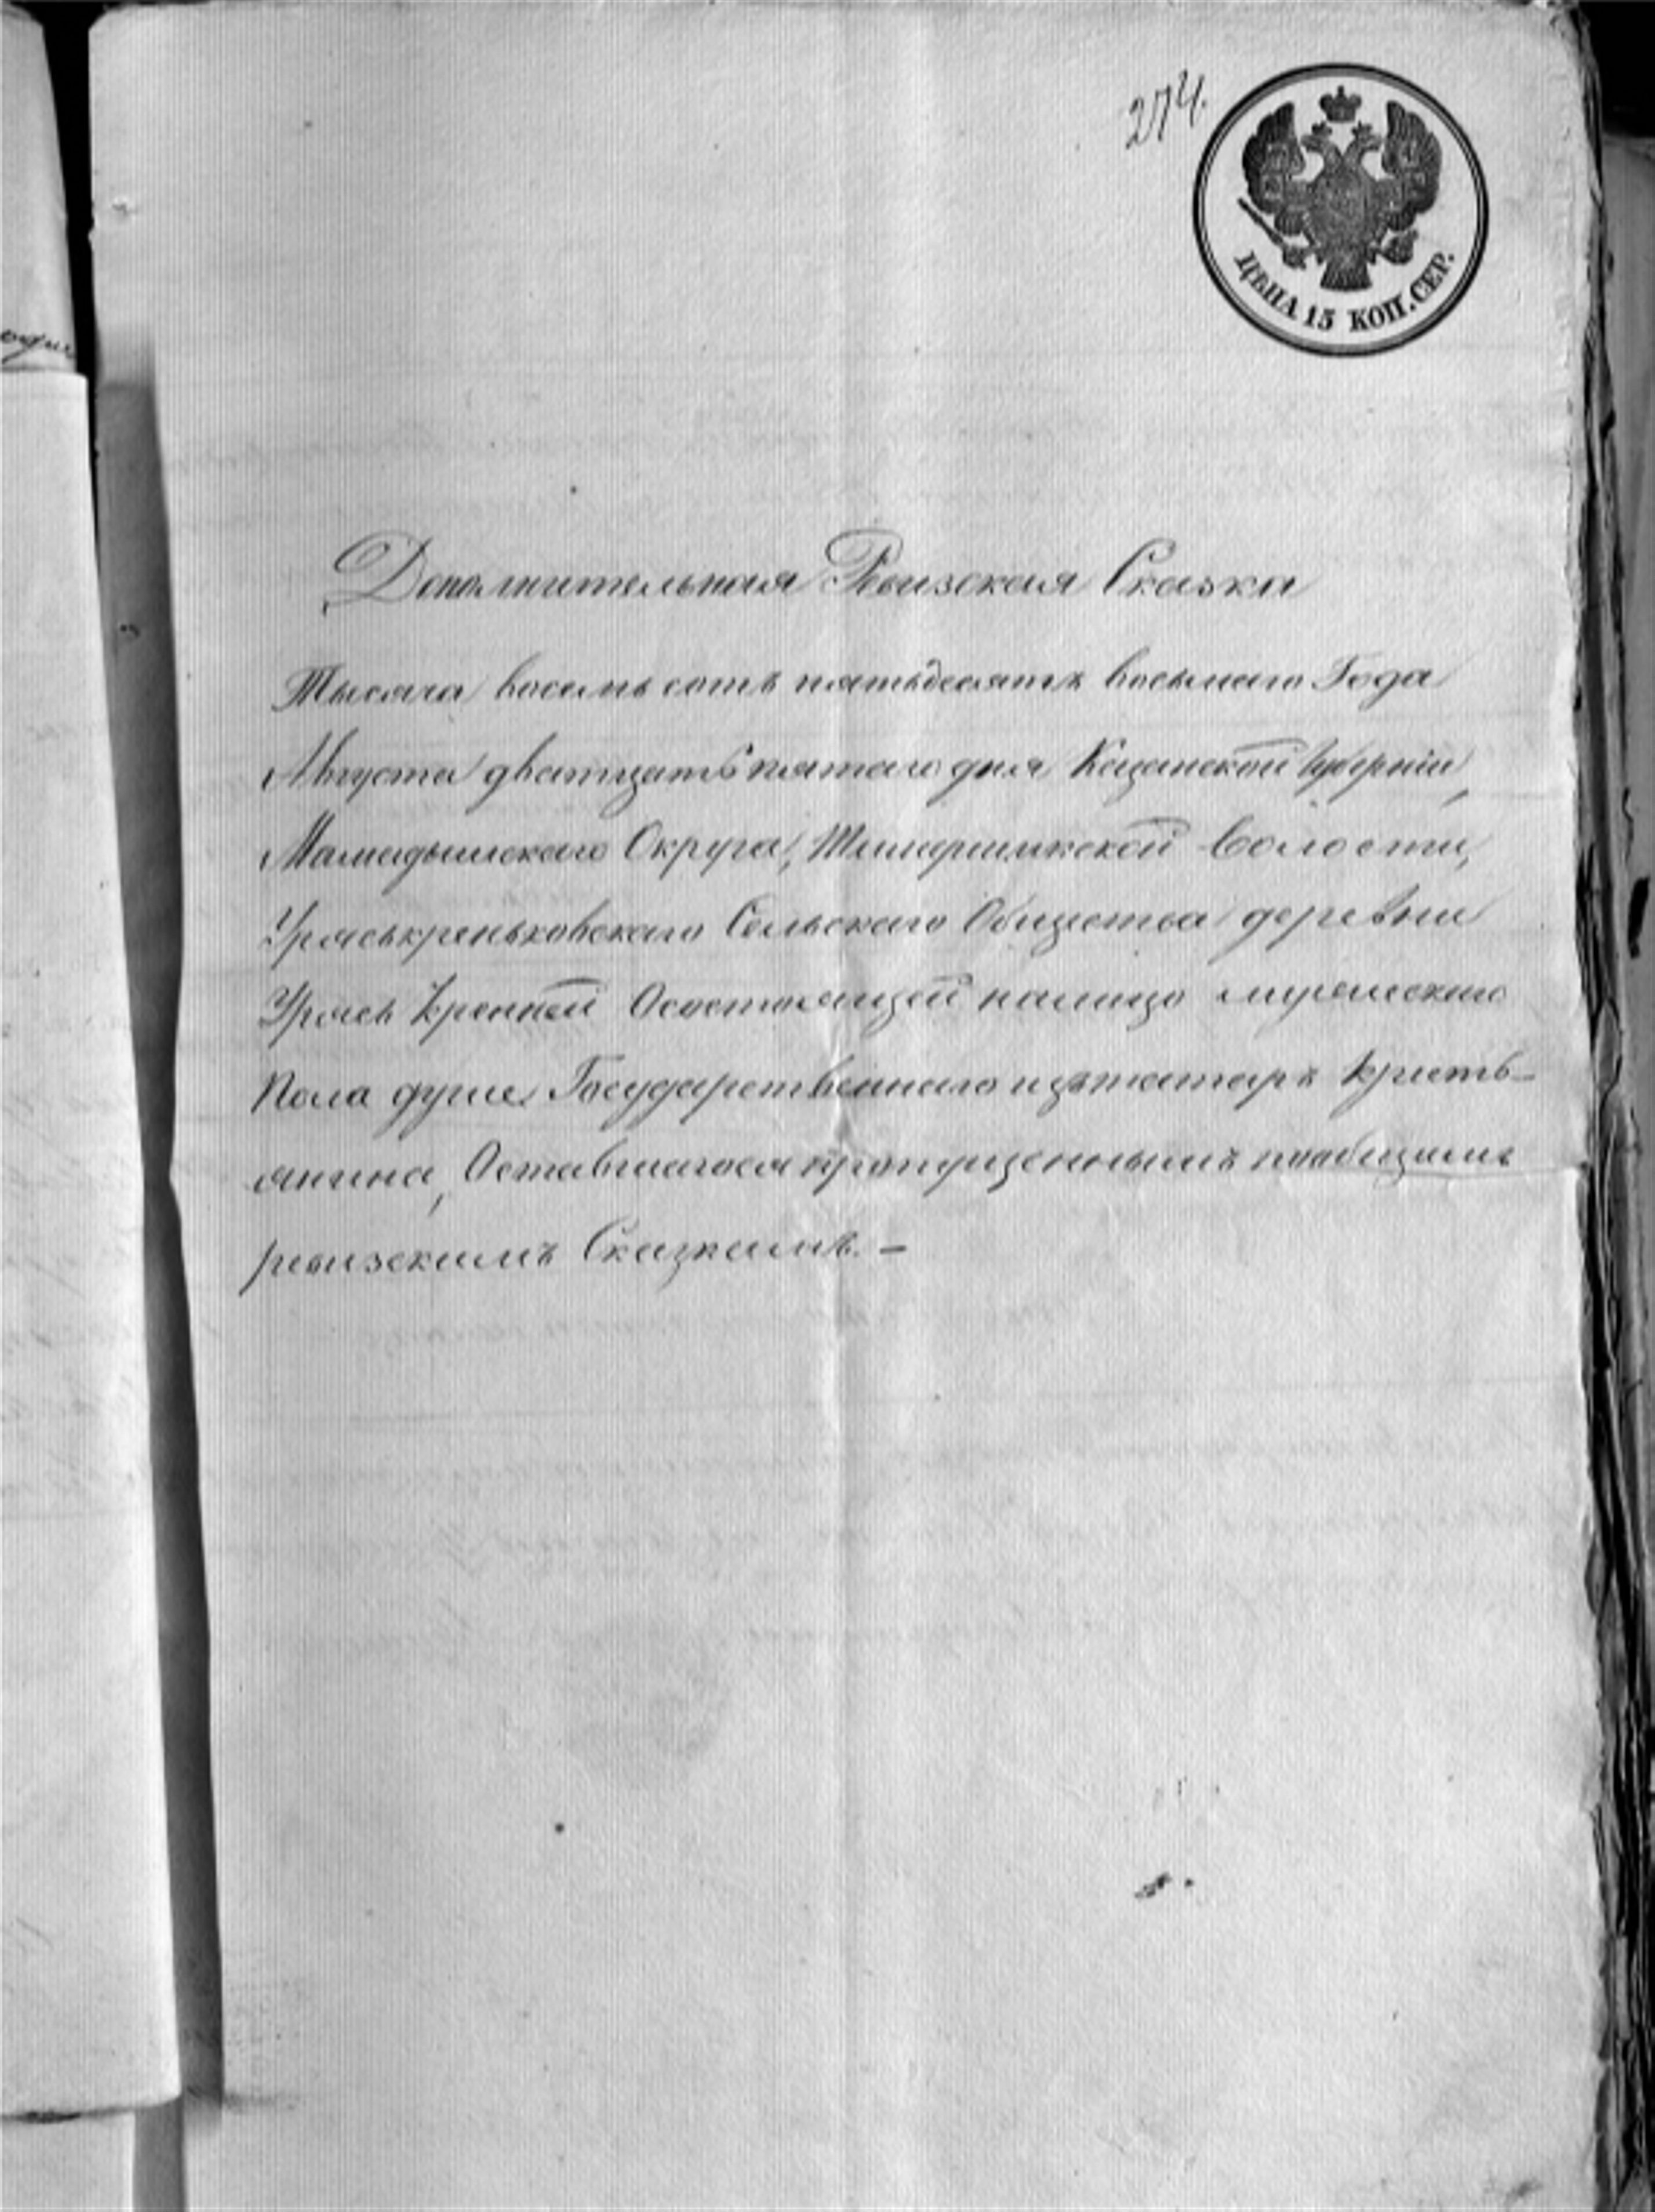 274.
ЦѢНА 15 КОП. СЕР.
Дополнительная Ревизская Сказка
Тысяча восемь сотъ пятьдесятъ восьмаго Года
Августа дватцать пятаго дня Казанской Губерніи,
Мамадышскаго Округа, Волости,
Уряськреньковскаго Сельскаго Общества деревни
Урясь О состоящей налицо мужескаго
Пола душе Государственнаго изъ татаръ кресть-
янина, Оставшагося пропущеннымъ пообщимъ
ревизскимъ Сказкамъ. —